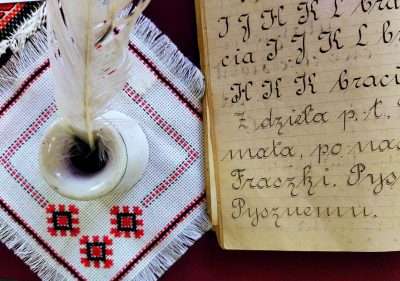 I J H K L bra
cia I J K L b
H K K braci
Z dzieła p. t.
mała, po na
Fraczki. Pys
Pysznemu.